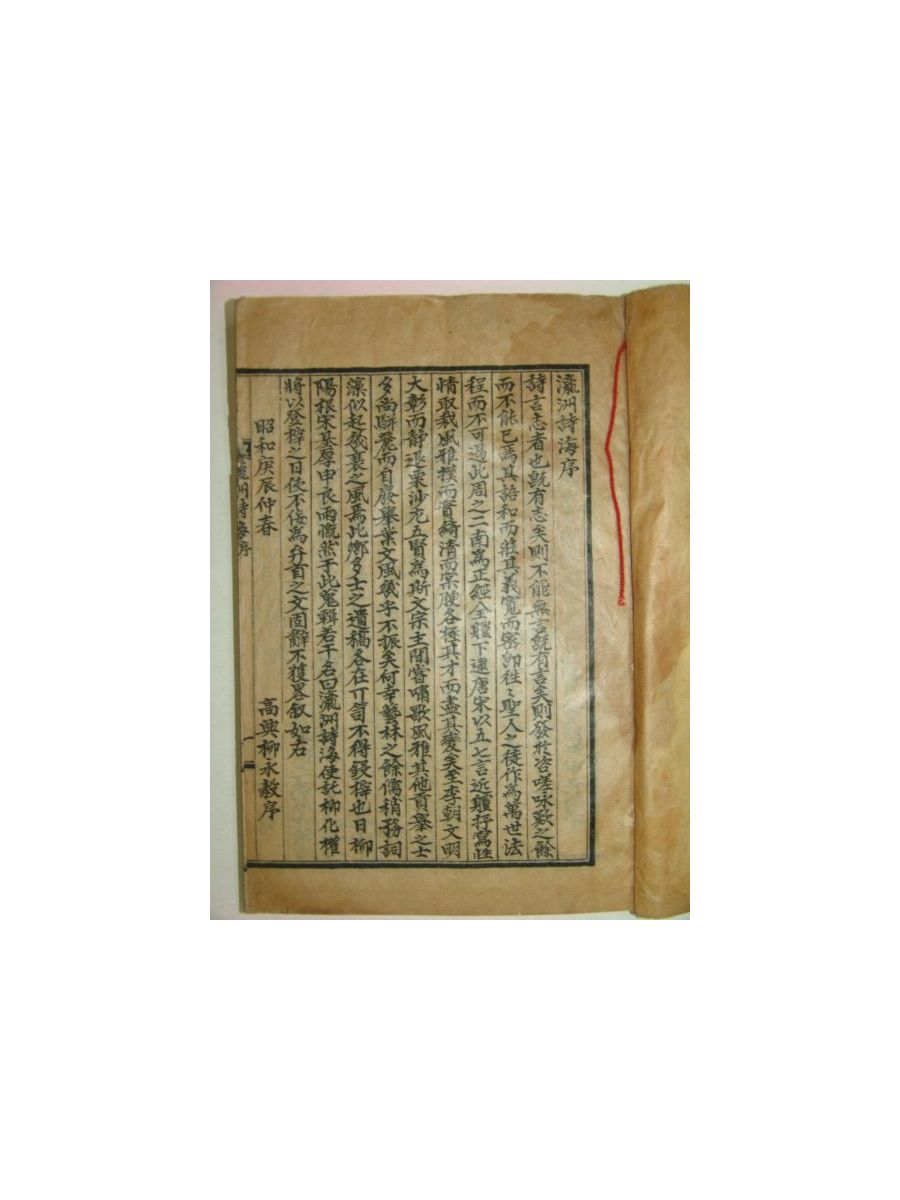 瀛洲詩海序
詩言志者也旣有志矣則不能無言旣有言矣則發於咨嗟咏歎之餘
而不能已焉其語和而莊其義寬而密卽往〻聖人之徒作為萬世法
程而不可過此周之二南為正經全體下逮唐宋以五七言近體抒寫性
情取裁風雅撲而實綺淸而棠腴各極其才而盡其變矣至李朝文明
大彰而靜退栗沙尤五賢為斯文宗主間嘗嘯歌風雅其他貢擧之士
多尙騈麗而自廢擧業文風幾乎不振矣何幸藝林之餘儒稍務詞
藻似起衰之風焉此鄕多士之遺稿各在丌笥不得鋟梓也日柳
陽根宋基厚申良雨慨然于此蒐輯若干名曰瀛洲詩海使託柳化權
將以登梓之日使不佞為弁首之文固辭不獲畧叙如右
昭和庚辰仲春 高興柳永毅序
瀛洲詩海序 一